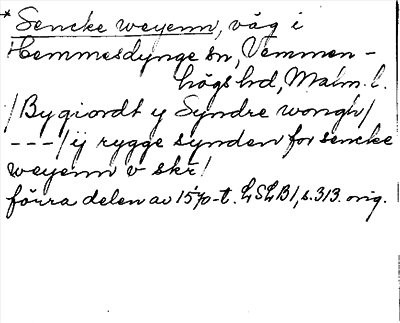 * Sencke weyenn, väg i
Hemmesdynge sn, Vemmen-
högs hd, Malm. l.
/Bygiordt y Syndre wongh/
---/ij rygge synden for sencke
weyenn v skr/
förra delen av 1570-t. LSLB1, s. 313. orig.